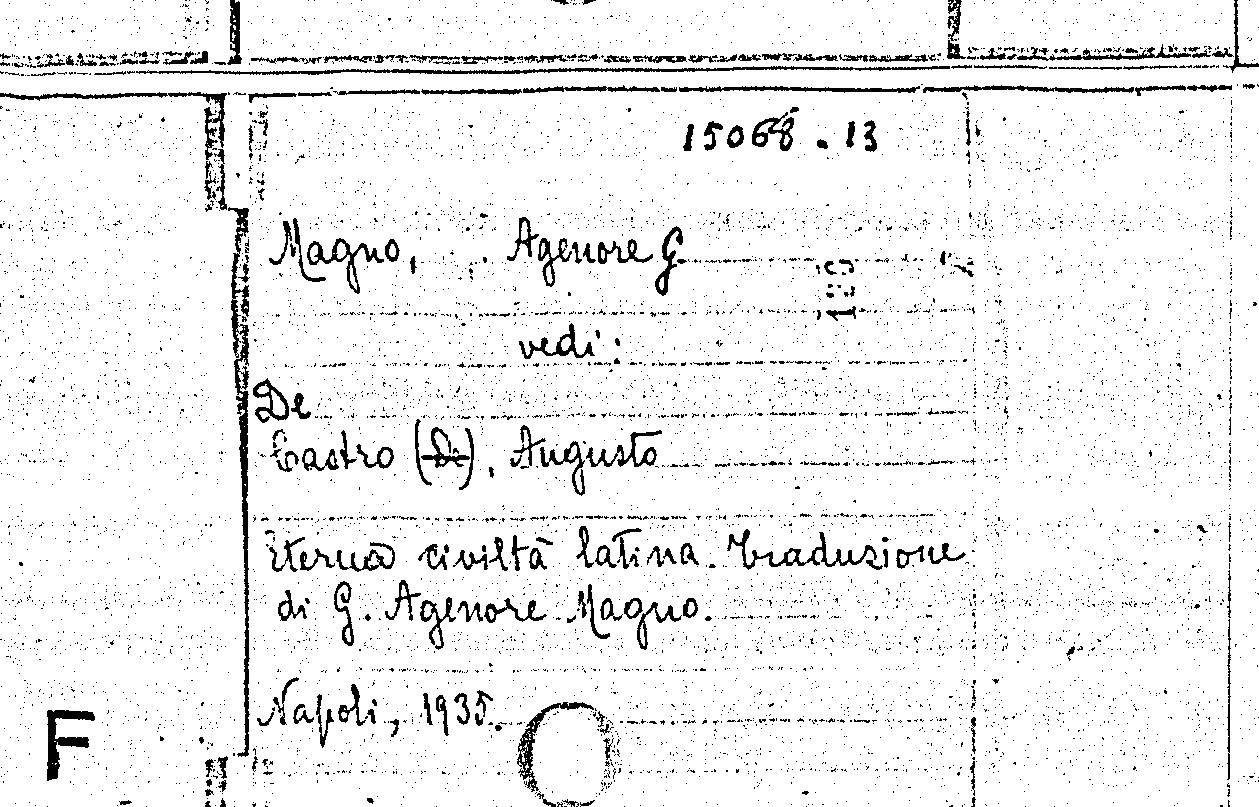 15068.13
Magno, Agenore G
vedi:
De
Castro (De), Augusto
Eterna civiltà latina. Traduzione
di G. Agenore Magno.
Napoli, 1935.
F